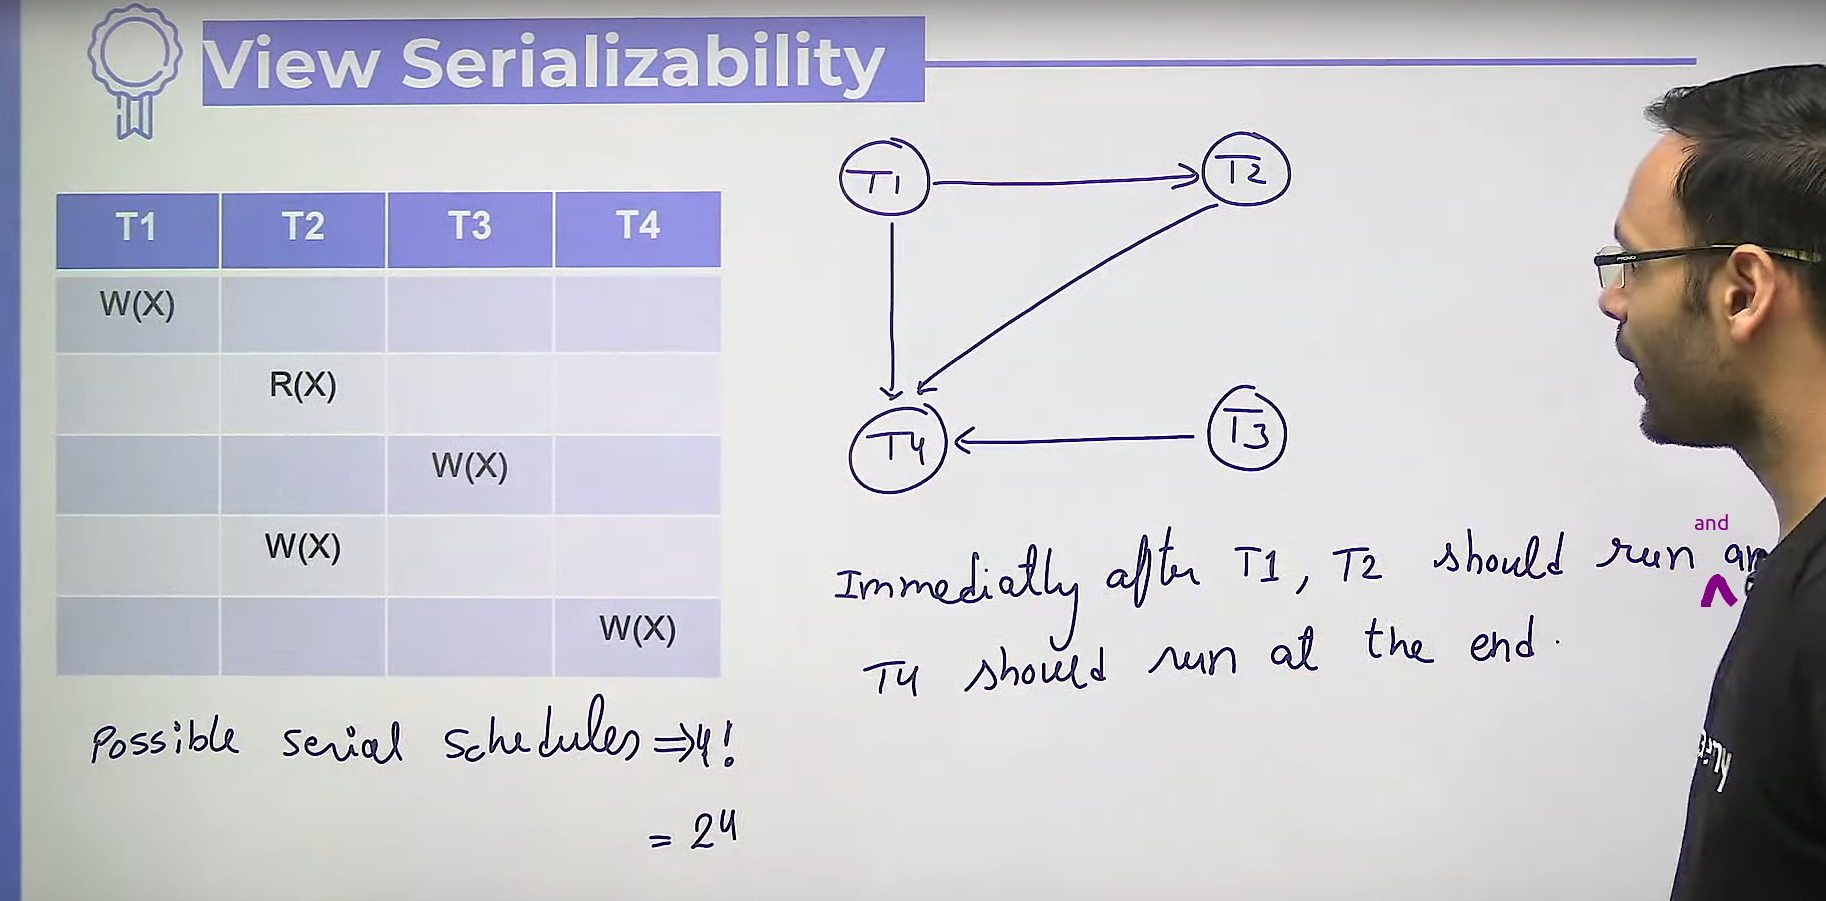 View Serializability
T1 T2 T3 T4
W(X)
R(X)
W(X)
W(X)
W(X)
Possible serial schedules ⇒ 4!
= 24
T1
T2
T4
T3
and
Immediatly after T1, T2 should run
T4 should run at the end.